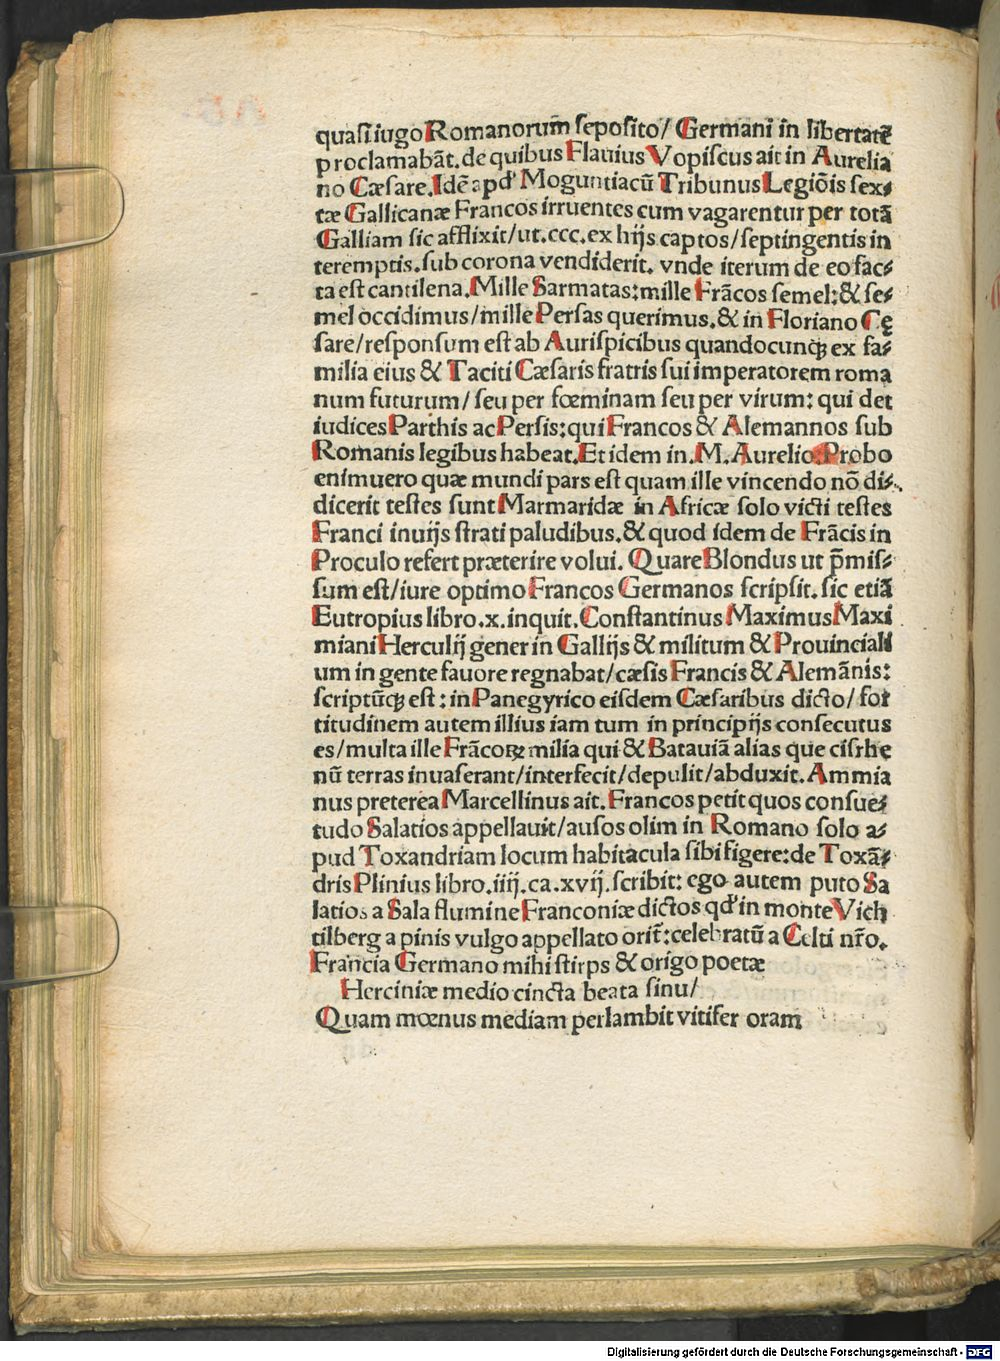 quasi iugo Romanorum̃ seposito/ Germani in libertatẽ
proclamabãt. de quibus Flauius Vopiscus ait in Aurelia
no Cæsare. Idẽ apd' Moguntiacũ Tribunus Legiõis sex⸗
tæ Gallicanæ Francos irruentes cum vagarentur per totã
Galliam sic afflixit/ut .ccc. ex hijs captos/septingentis in
teremptis. sub corona vendiderit. vnde iterum de eo fac⸗
ta est cantilena. Mille Sarmatas: mille Frãcos semel: & se⸗
mel occidimus/mille Persas querimus. & in Floriano Cę
sare/responsum est ab Aurispicibus quandocunqꝫ ex fa⸗
milia eius & Taciti Cæsaris fratris sui imperatorem roma
num futurum/ seu per fœminam seu per virum: qui det
iudices Parthis ac Persis: qui Francos & Alemannos sub
Romanis legibus habeat. Et idem in. M. Aurelio. Probo
enimuero quæ mundi pars est quam ille vincendo nõ di⸗
dicerit testes sunt Marmaridæ in Africæ solo victi testes
Franci inuijs strati paludibus. & quod idem de Frãcis in
Proculo refert præterire volui. Quare Blondus ut p̃mis⸗
sum est/iure optimo Francos Germanos scripsit. sic etiã
Eutropius libro .x. inquit. Constantinus Maximus Maxi
miani Herculij gener in Gallijs & militum & Prouinciali
um in gente fauore regnabat/cæsis Francis & Alemãnis:
scriptũqꝫ est: in Panegyrico eisdem Cæsaribus dicto/ for
titudinem autem illius iam tum in principijs consecutus
es/multa ille Frãcoꝝ milia qui & Batauiã alias que cisrhe
nũ terras inuaserant/interfecit/depulit/abduxit. Ammia
nus preterea Marcellinus ait. Francos petit quos consue⸗
tudo Salatios appellauit/ausos olim in Romano solo a⸗
pud Toxandriam locum habitacula sibi figere: de Toxã⸗
dris Plinius libro .iiij. ca. xvij. scribit: ego autem puto Sa
latios a Sala flumine Franconiæ dictos qd' in monte Vich
tilberg a pinis vulgo appellato orit̃: celebratũ a Celti nr̃o.
Francia Germano mihi stirps & origo poetæ
Herciniæ medio cincta beata sinu/
Quam mœnus mediam perlambit vitifer oram
Digitalisierung gefördert durch die Deutsche Forschungsgemeinschaft - DFG